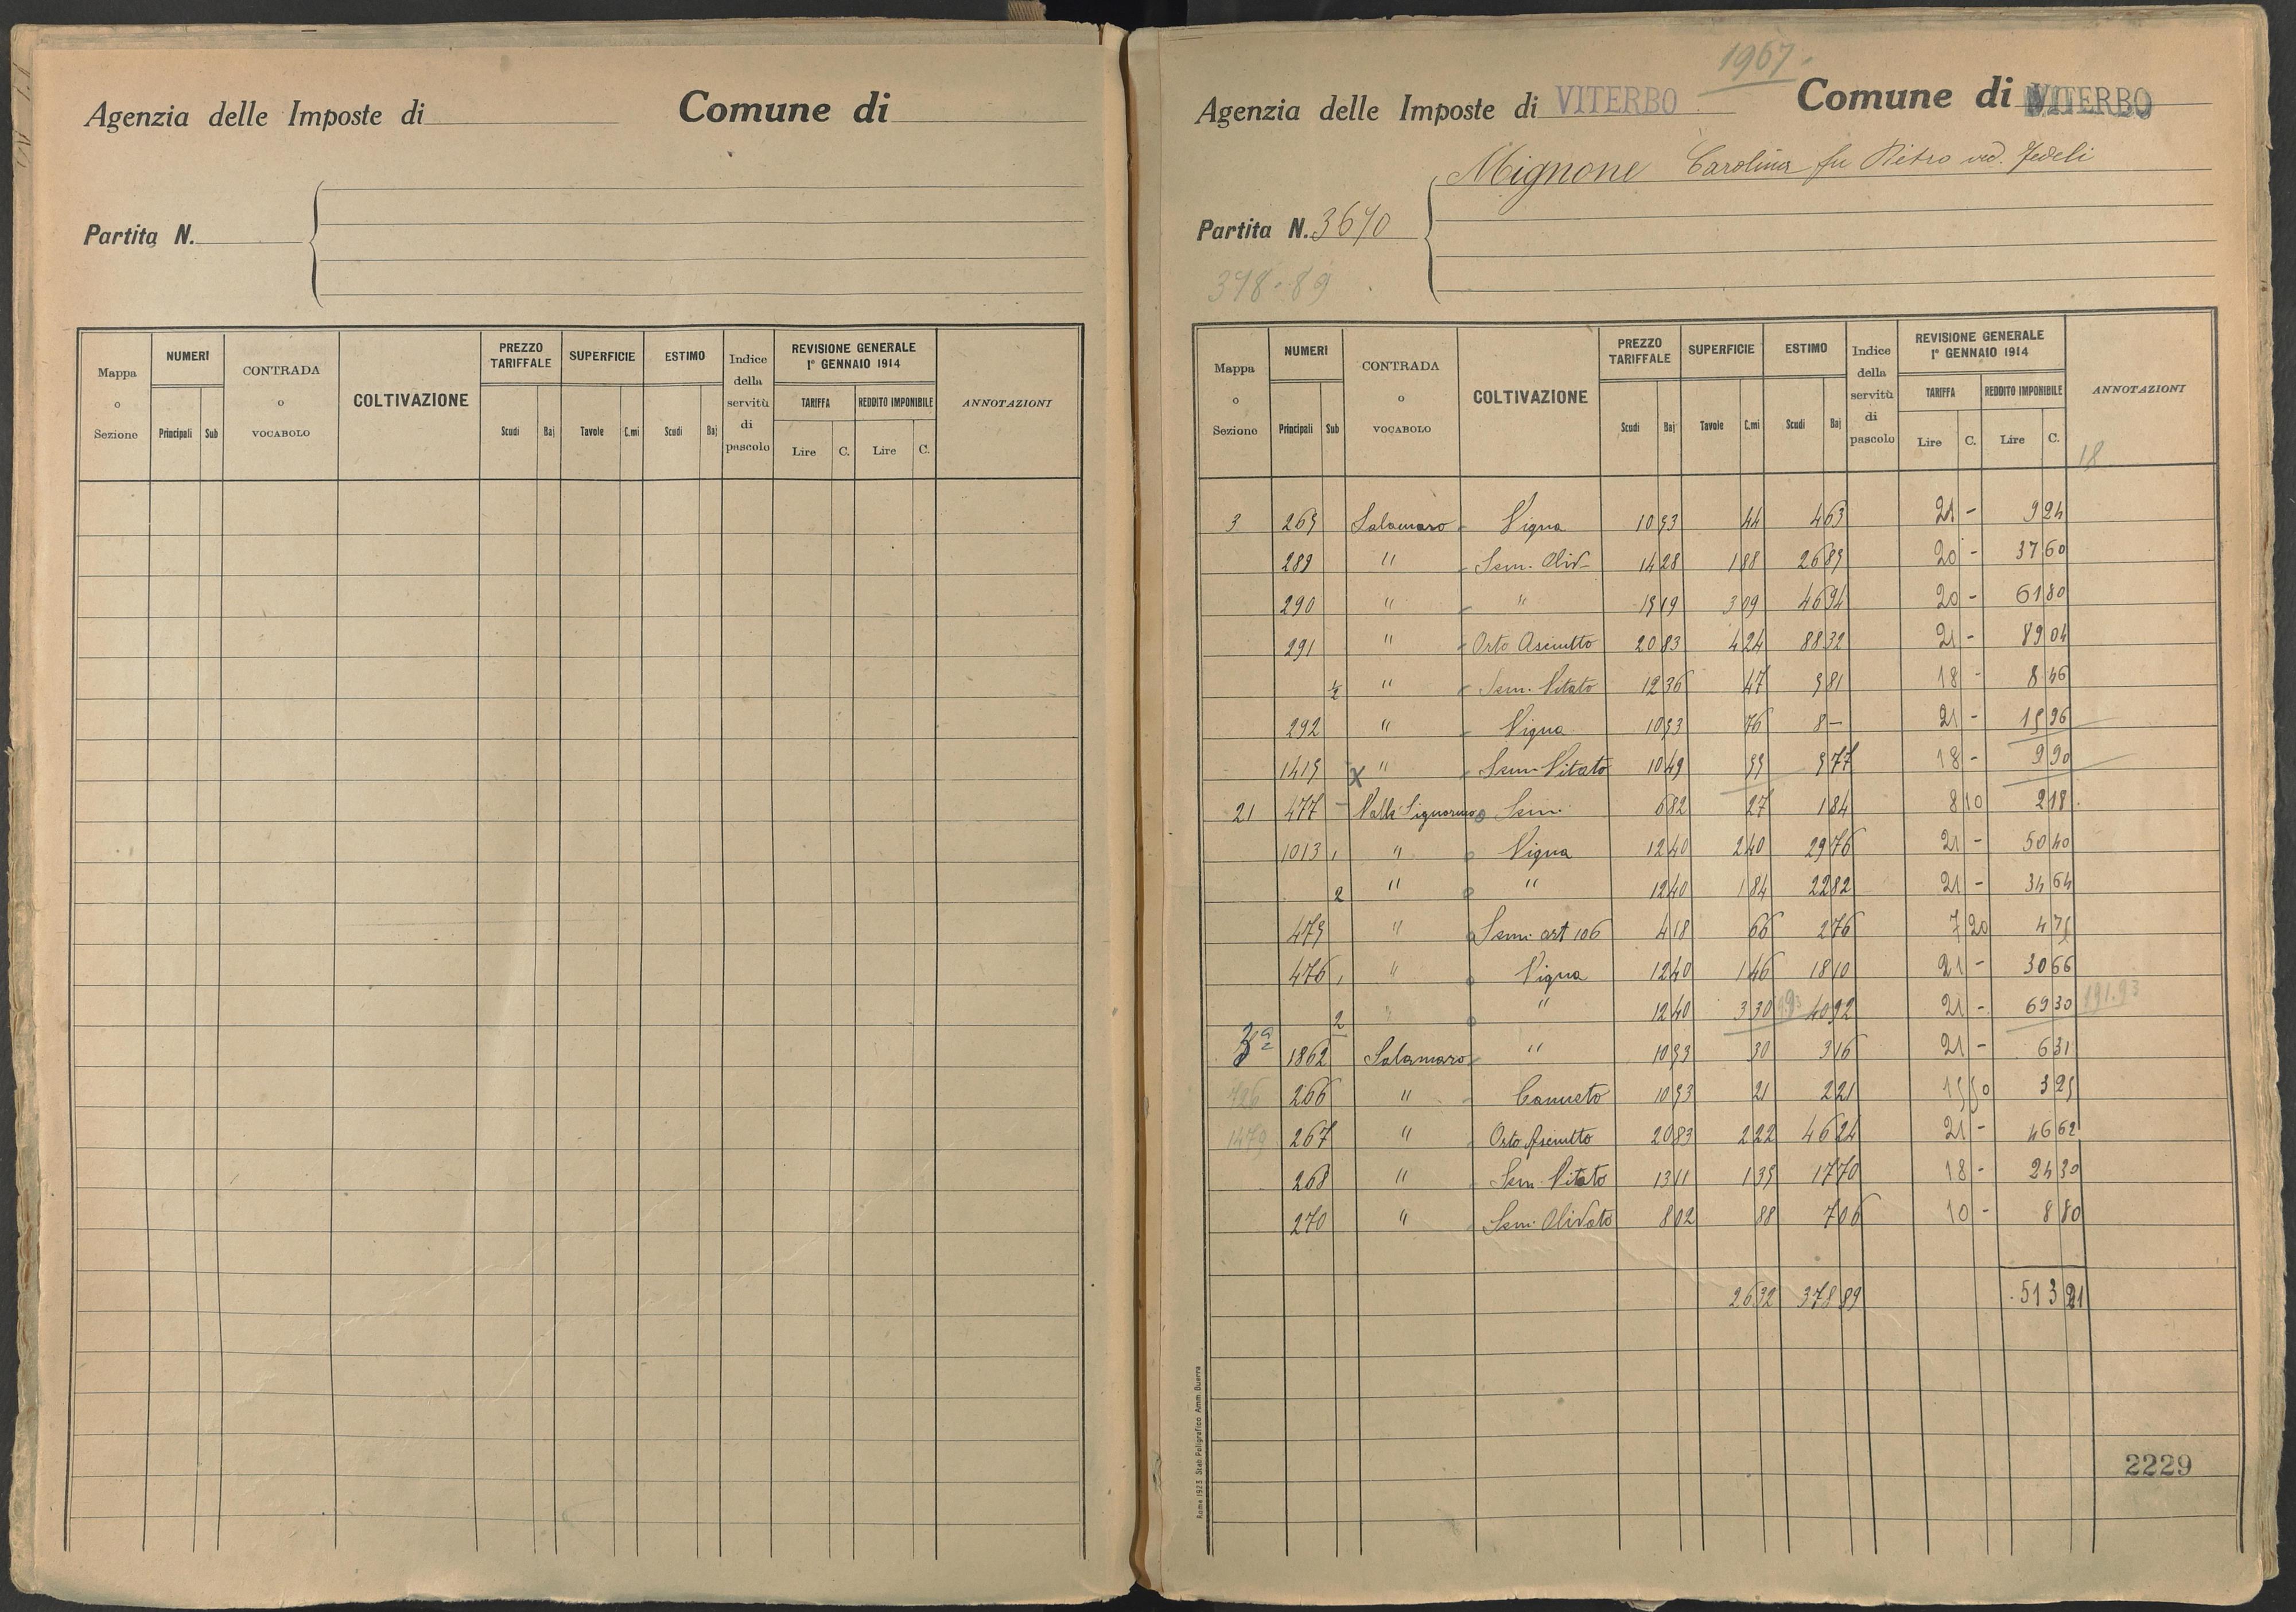 Agenzia delle Imposte di
Comune di
Partita N.
Mappa o Sezione
NUMERI
Principali Sub
CONTRADA o VOCABOLO
COLTIVAZIONE
PREZZO TARIFFALE
Scudi Baj
SUPERFICIE
Tavole C.mi
ESTIMO
Scudi Baj
Indice della servitù di pascolo
REVISIONE GENERALE 1° GENNAIO 1914
TARIFFA
Lire C.
REDDITO IMPONIBILE
Lire C.
ANNOTAZIONI
1967
Agenzia delle Imposte di VITERBO
Comune di VITERBO
Mignone Carolina fu Pietro ved. Fedeli
Partita N. 3670
378-89
Mappa o Sezione
NUMERI
Principali Sub
CONTRADA o VOCABOLO
COLTIVAZIONE
PREZZO TARIFFALE
Scudi Baj
SUPERFICIE
Tavole C.mi
ESTIMO
Scudi Baj
Indice della servitù di pascolo
REVISIONE GENERALE 1° GENNAIO 1914
TARIFFA
Lire C.
REDDITO IMPONIBILE
Lire C.
ANNOTAZIONI
18
3 265 Salamaro Vigna 10 53 44 4 63 21 - 9 24
289 " Sem. Oliv. 14 28 1 88 26 85 20 - 37 60
290 " " 15 19 3 09 46 94 20 - 61 80
291 " Orto Asciutto 20 83 4 24 88 32 21 - 89 04
1/2 " Sem. Vitato 12 36 47 5 81 18 - 8 46
292 " Vigna 10 53 76 8 - 21 - 15 96
1415 x " Sem. Vitato 10 49 55 5 77 18 - 9 90
21 477 Valle Signorino Sem. 6 82 27 1 84 8 10 2 18
1013 1 " Vigna 12 40 2 40 29 76 21 - 50 40
2 " " 12 40 1 84 22 82 21 - 34 64
475 " Sem. art 106 4 18 66 2 76 7 20 4 75
476 1 " Vigna 12 40 1 46 18 10 21 - 30 66
2 " " 12 40 3 30 40 92 21 - 69 30 191.93
3a 1862 Salamaro " 10 53 30 3 16 21 - 6 31
726 266 " Canneto 10 53 21 2 21 15 50 3 25
1479 267 " Orto Asciutto 20 83 2 22 46 24 21 - 46 62
268 " Sem. Vitato 13 11 1 35 17 70 18 - 24 30
270 " Sem. Olivato 8 02 88 7 06 10 - 8 80
26 32 378 89 513 21
2229
Roma 1923 Stab. Poligrafico Amm. Guerra